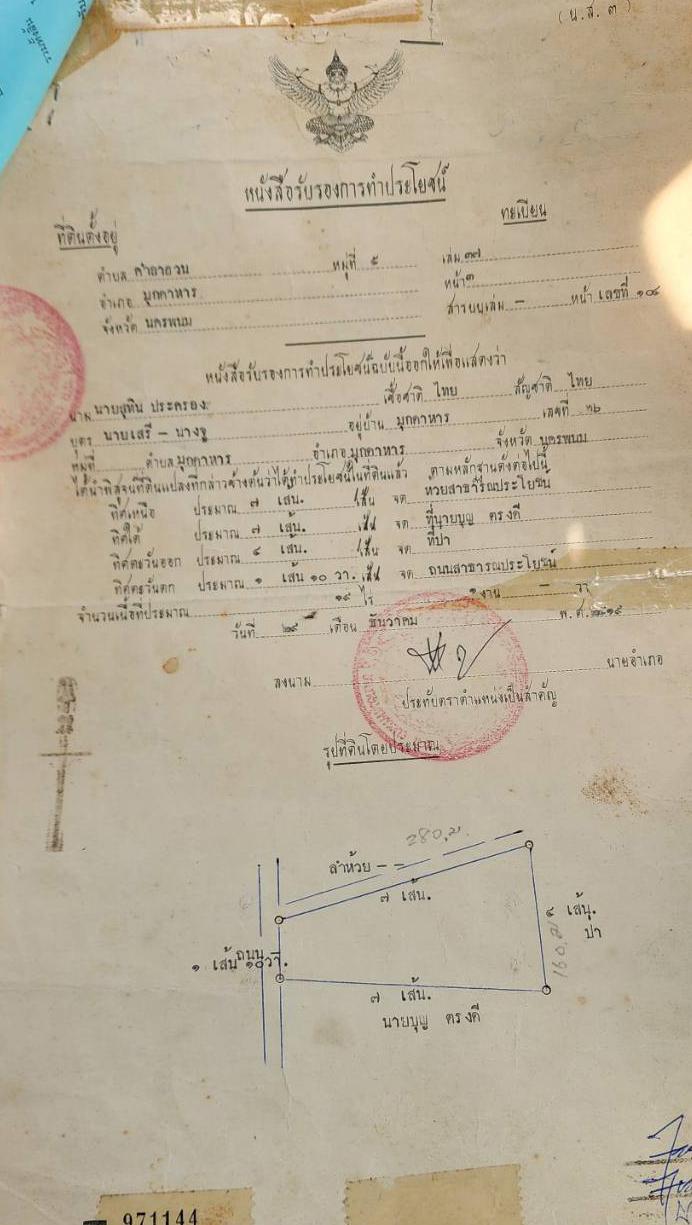 (น.ส. ๓)
หนังสือรับรองการทำประโยชน์
ที่ดินตั้งอยู่
ทะเบียน
ตำบล คำอาฮวน หมู่ที่ ๕ เล่ม ๓๗
อำเภอ มุกดาหาร หน้า ๓
จังหวัด นครพนม สารบบเล่ม - หน้า เลขที่ ๑๐๔
หนังสือรับรองการทำประโยชน์ฉบับนี้ออกให้เพื่อแสดงว่า
นาม นายสุทิน ประครอง เชื้อชาติ ไทย สัญชาติ ไทย
บุตร นายเสรี - นางจู อยู่บ้าน มุกดาหาร เลขที่ ๖
หมู่ที่ ตำบล มุกดาหาร อำเภอ มุกดาหาร จังหวัด นครพนม
ได้นำพิสูจน์ที่ดินแปลงที่กล่าวข้างต้นว่าได้ทำประโยชน์ในที่ดินแล้ว ตามหลักฐานดังต่อไปนี้
ทิศเหนือ ประมาณ ๗ เส้น. เส้น จด ห้วยสาธารณประโยชน์
ทิศใต้ ประมาณ ๗ เส้น. เส้น จด ที่นายบุญ ตรงดี
ทิศตะวันออก ประมาณ ๔ เส้น. เส้น จด ที่ป่า
ทิศตะวันตก ประมาณ ๑ เส้น ๑๐ วา. เส้น จด ถนนสาธารณประโยชน์
จำนวนเนื้อที่ประมาณ ๑๙ ไร่ ๑ งาน - วา
วันที่ ๒๙ เดือน ธันวาคม พ.ศ. ๒๕๑๙
ลงนาม นายอำเภอ
ประทับตราตำแหน่งเป็นสำคัญ
รูปที่ดินโดยประมาณ
280 ม.
ลำห้วย - -
๗ เส้น.
๔ เส้น.
ป่า
160 ม.
ถนน
๑ เส้น ๑๐ วา.
๗ เส้น.
นายบุญ ตรงดี
971144